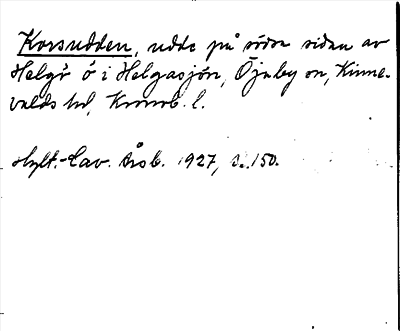 Korsudden, udde på södra sidan av
Helgö ö i Helgasjön, Öjaby sn, Kinne-
valds hd, Kronob. l.
Hylt.-Cav. Årsb. 1927, s. 150.